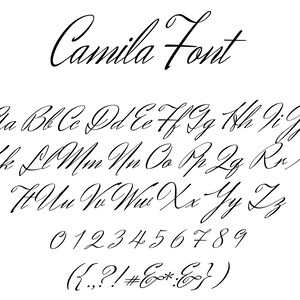 Camila Font
a Bb Cc Dd Ee Ff Gg Hh Ii
k Ll Mm Nn Oo Pp Qq Rr
Tt Uu Vv Ww Xx Yy Zz
0 1 2 3 4 5 6 7 8 9
({.,?!#&*:&})